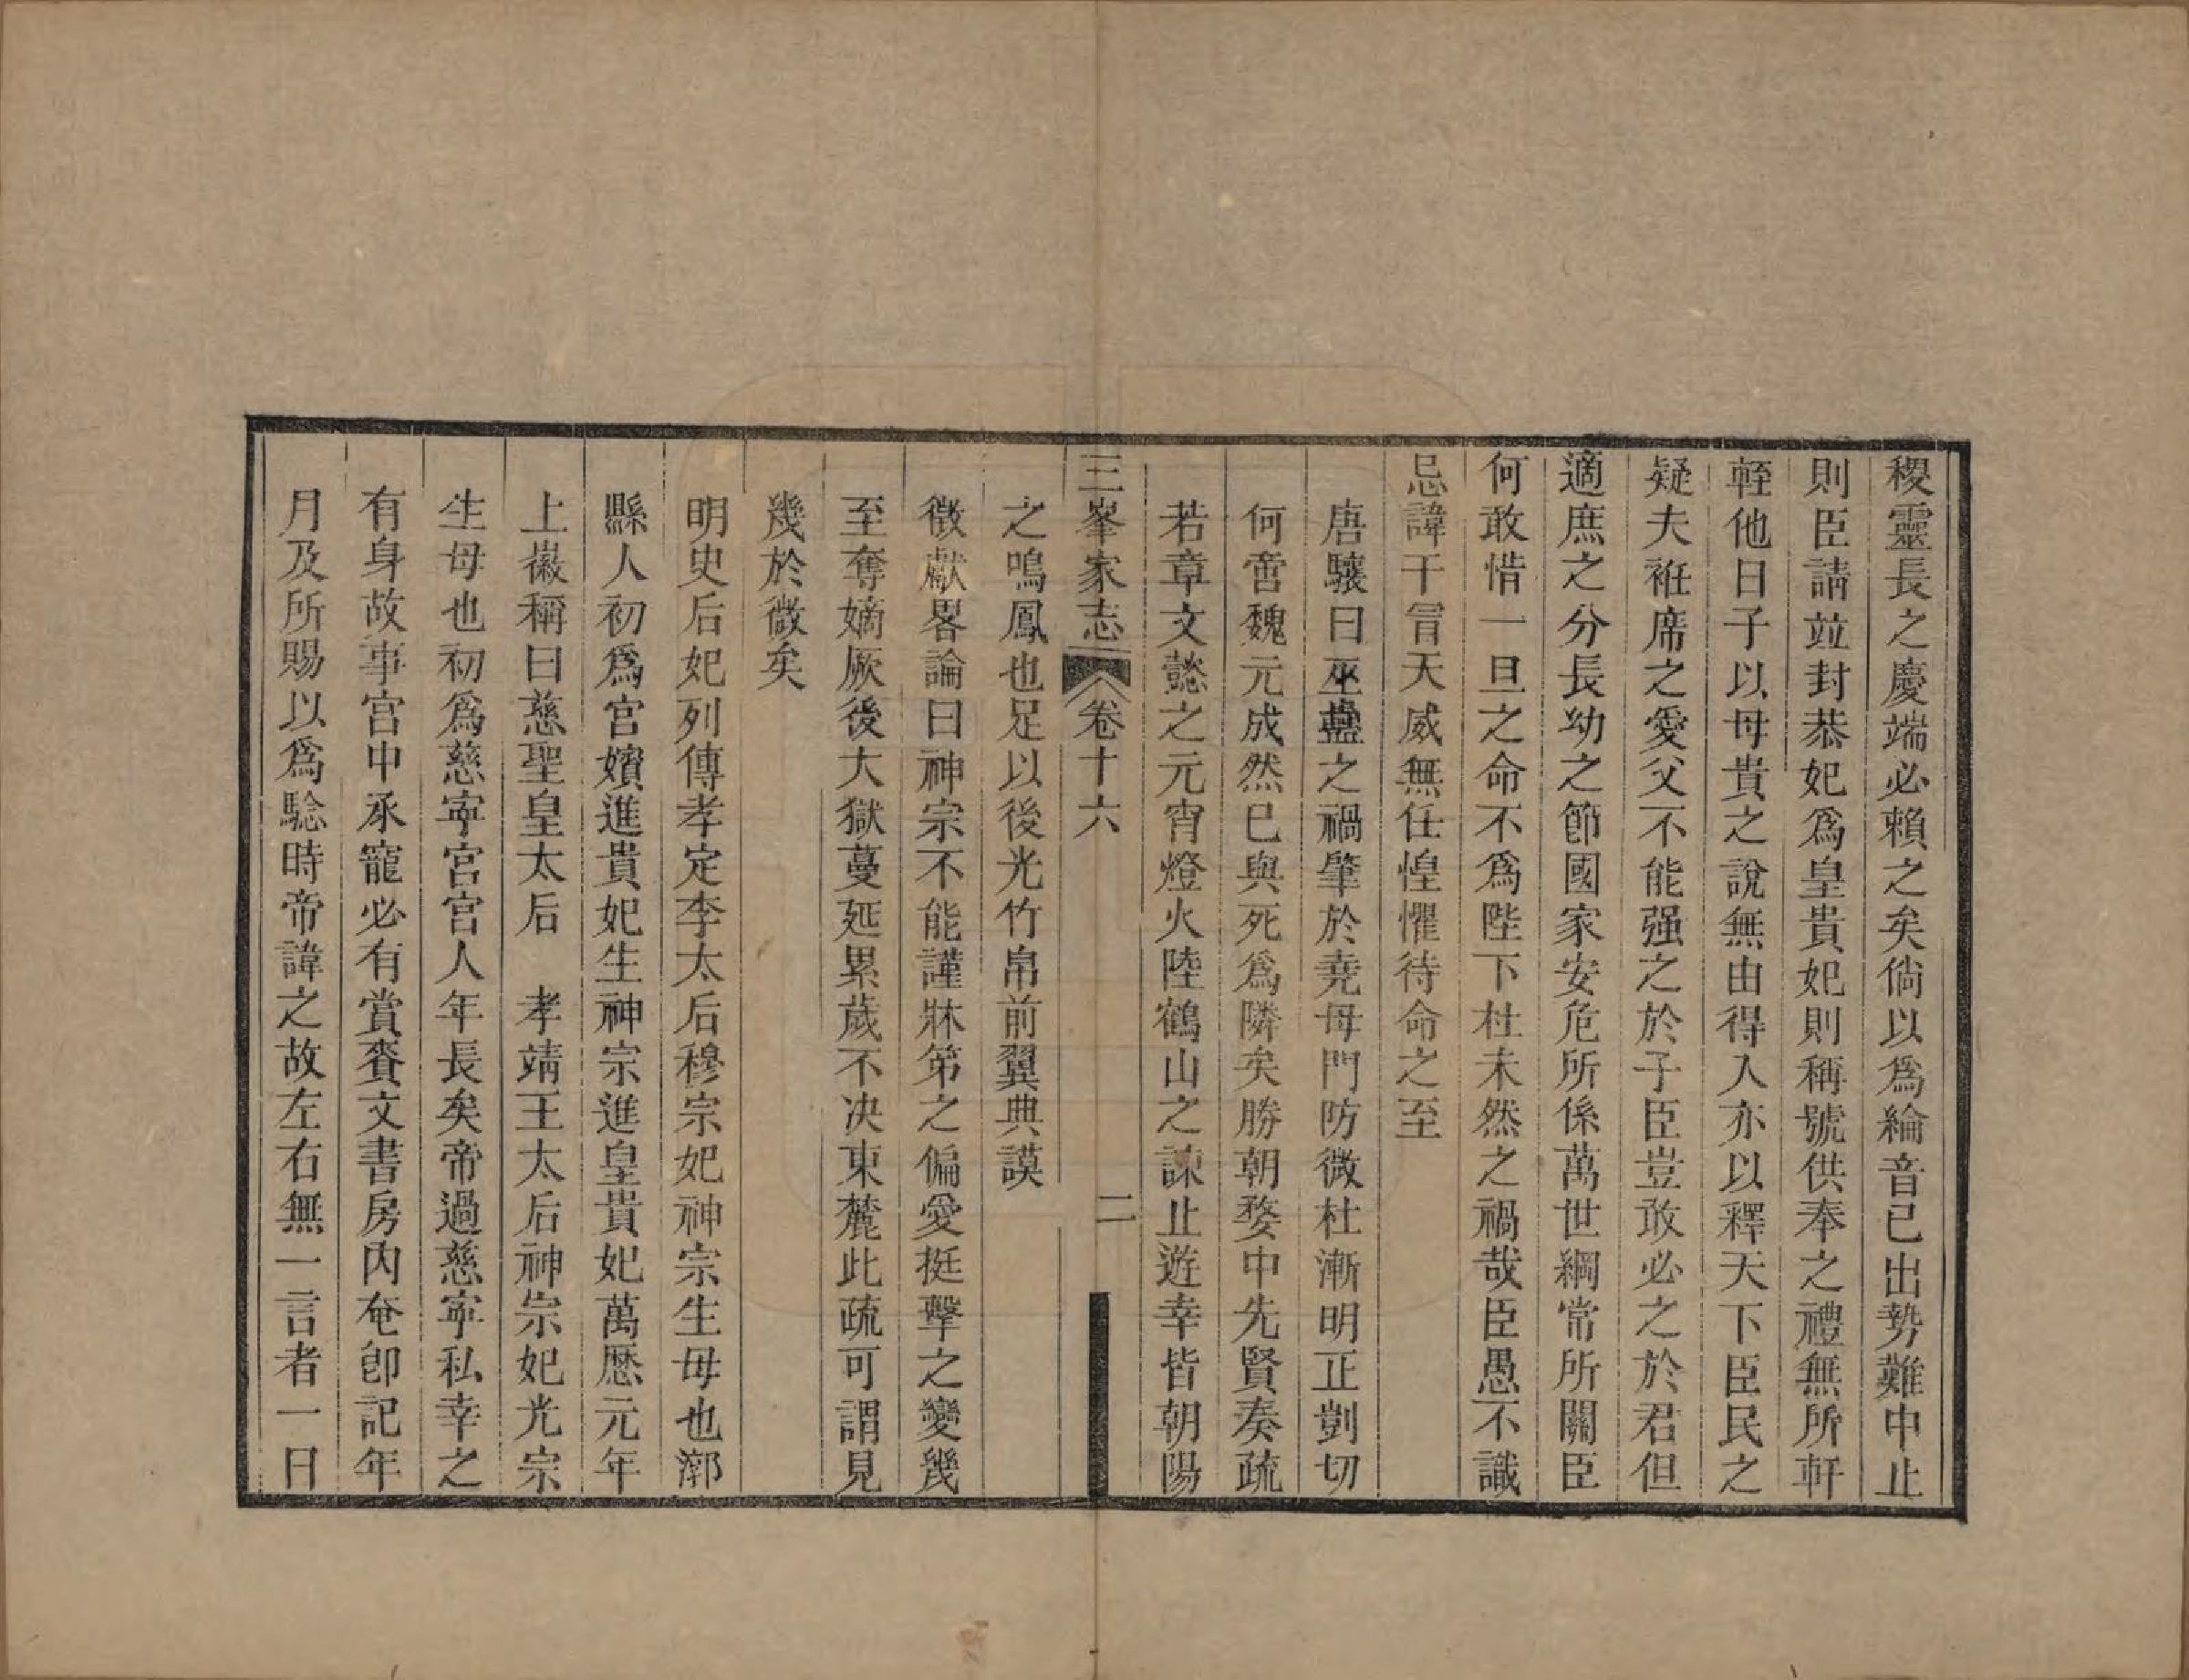 稷靈長之慶端必賴之矣倘以爲綸音已出勢難中止
則臣請並封恭妃爲皇貴妃則稱號供奉之禮無所軒
輊他日子以母貴之說無由得入亦以釋天下臣民之
疑夫袵席之愛父不能强之於子臣豈敢必之於君但
適庶之分長幼之節國家安危所係萬世綱常所關臣
何敢惜一旦之命不爲陛下杜未然之禍哉臣愚不識
忌諱干冒天威無任惶懼待命之至
唐驤曰巫蠱之禍肇於堯母門防微杜漸明正剴切
何啻魏元成然已與死爲隣矣勝朝婺中先賢奏疏
若章文懿之元宵燈火陸鶴山之諫止遊幸皆朝陽
三峯家志 卷十六 二
之鳴鳳也足以後光竹帛前翼典謨
徵獻畧論曰神宗不能謹牀第之偏愛挺擊之變幾
至奪嫡厥後大獄蔓延累歲不決東麓此疏可謂見
幾於微矣
明史后妃列傳孝定李太后穆宗妃神宗生母也漷
縣人初爲宮嬪進貴妃生神宗進皇貴妃萬歷元年
上徽稱曰慈聖皇太后　孝靖王太后神宗妃光宗
生母也初爲慈寧宮宮人年長矣帝過慈寧私幸之
有身故事宮中承寵必有賞賚文書房內奄卽記年
月及所賜以爲騐時帝諱之故左右無一言者一日